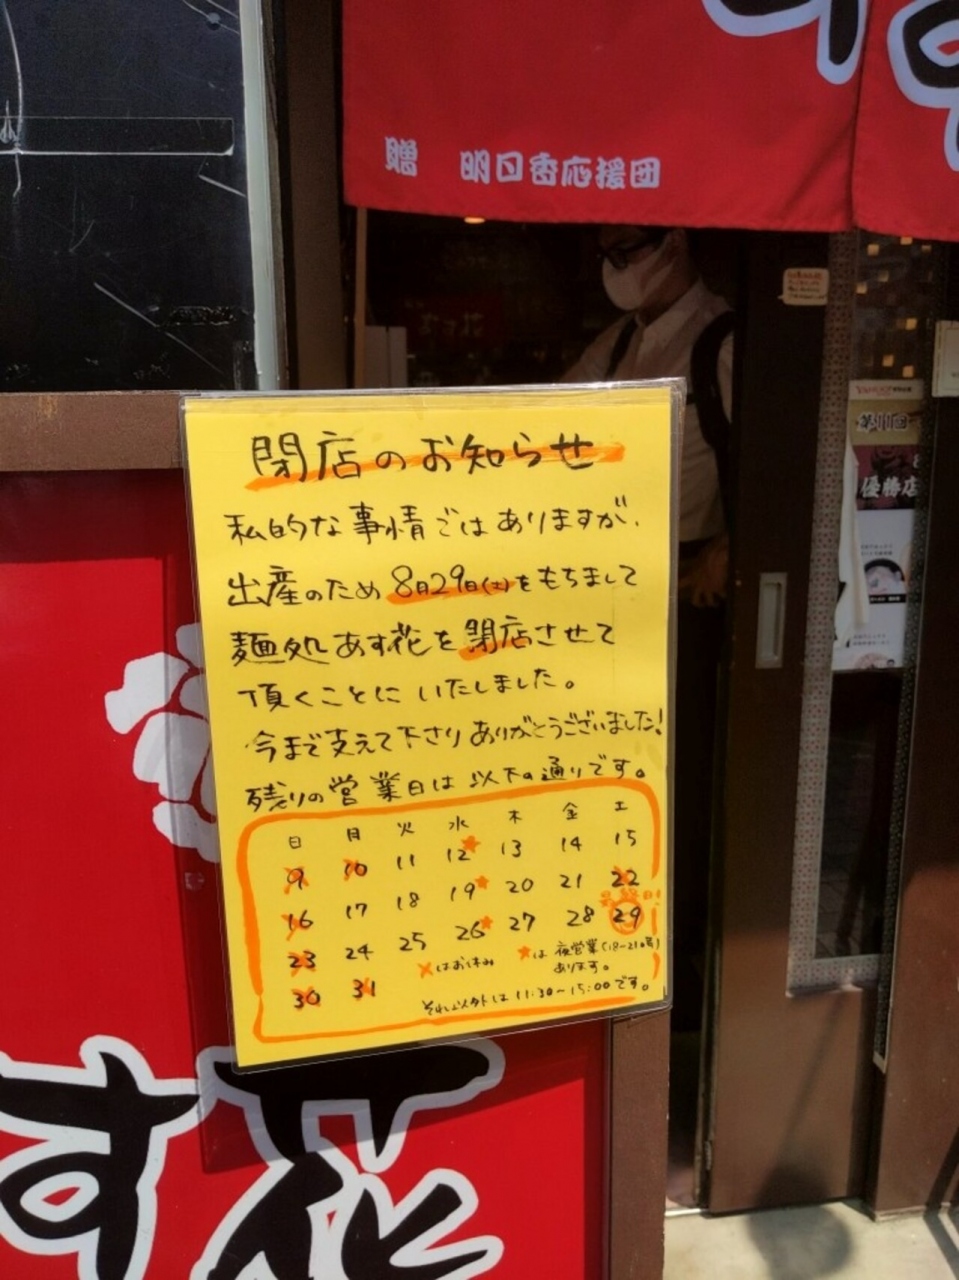 贈 明日香応援団
あす花
YAHOO!
第11回
優勝店
閉店のお知らせ
私的な事情ではありますが、
出産のため8月29日(土)をもちまして
麺処あす花を閉店させて
頂くことにいたしました。
今まで支えて下さりありがとうございました!
残りの営業日は以下の通りです。
日 月 火 水 木 金 土
9 10 11 12 13 14 15
16 17 18 19 20 21 22
23 24 25 26 27 28 29
30 31
×はお休み
★は夜営業(18-21時)
あります。
それ以外は11:30~15:00です。
す花